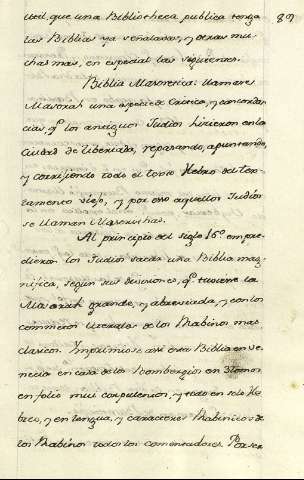 util, que una Bibliotheca publica tenga
las Biblias ya señaladas, y otras mu-
chas mas, en especial las siguientes.
Biblia Masoretica: llamase
Masorah una especie de Critica, y concordan
cias, q.e los antiguos Judios hicieron en la
Ciudad de Tiberiada, repasando, apuntando,
y corrijiendo todo el texto Hebreo del tes-
tamento viejo, y por eso aquellos Judios
se llaman Masorethas.
Al principio del siglo 16.º empren
dieron los Judios sacar una Biblia mag-
nifica, segun sus devociones, q.e tuviese la
Masorah grande, y abreviada, y con los
comentos literales de los Rabinos mas
clasicos. Imprimiose asi esta Biblia en Ve-
necia en casa de los Bombergios en 3 tomos
en folio mui corpulentos, y todo en solo He
breo, y en lengua, y caracteres Rabinicos de
los Rabinos todos los comentadores. Por ser
89